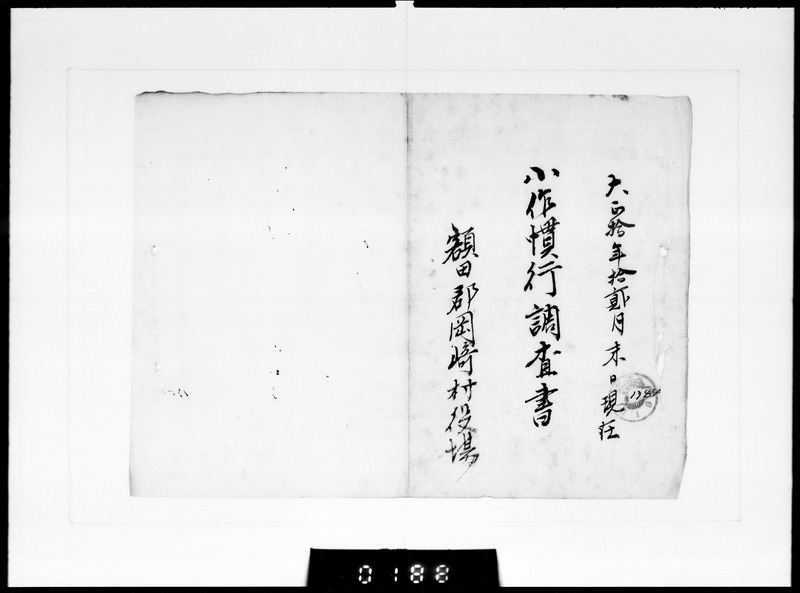 大正拾年拾貳月末日現在
小作慣行調査書
額田郡岡崎村役場
0188